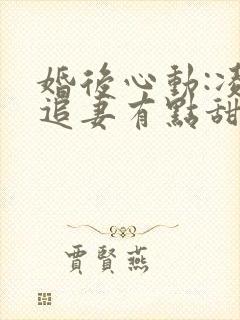 婚後心動:
追妻有點甜
賈賢燕